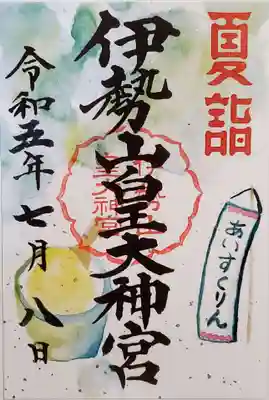 夏詣
伊勢山皇大神宮
令和五年七月八日
あいすくりん